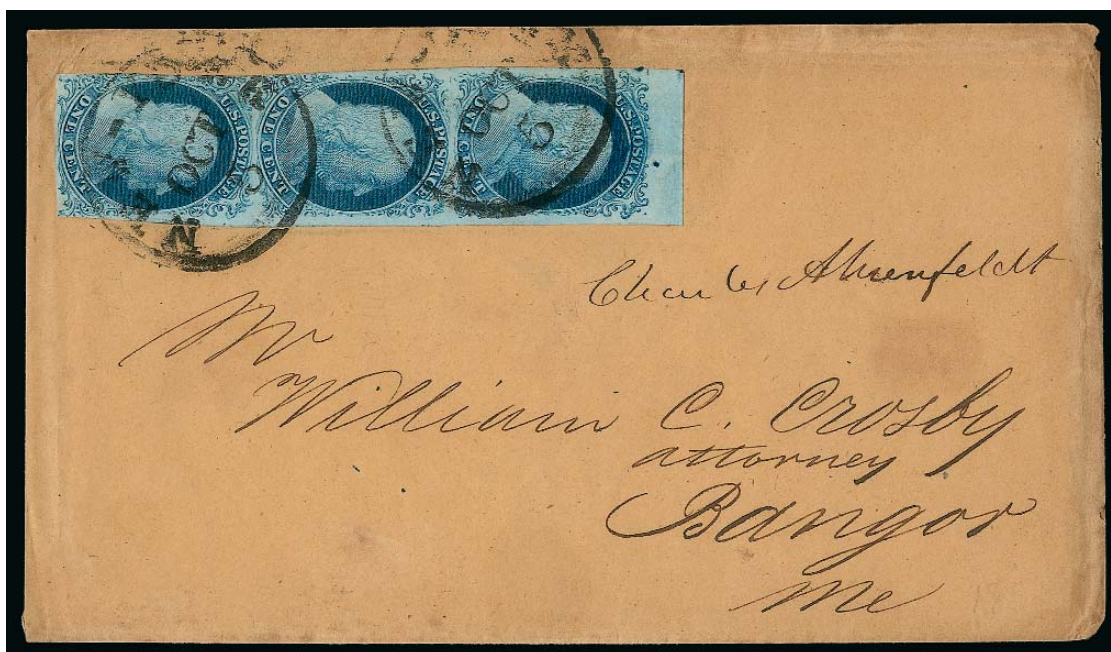 U.S. POSTAGE
ONE CENT
U.S. POSTAGE
ONE CENT
U.S. POSTAGE
OCT
5
OCT
5
Charles Ahrenfeldt
Mr
William C. Crosby
attorney
Bangor
Me